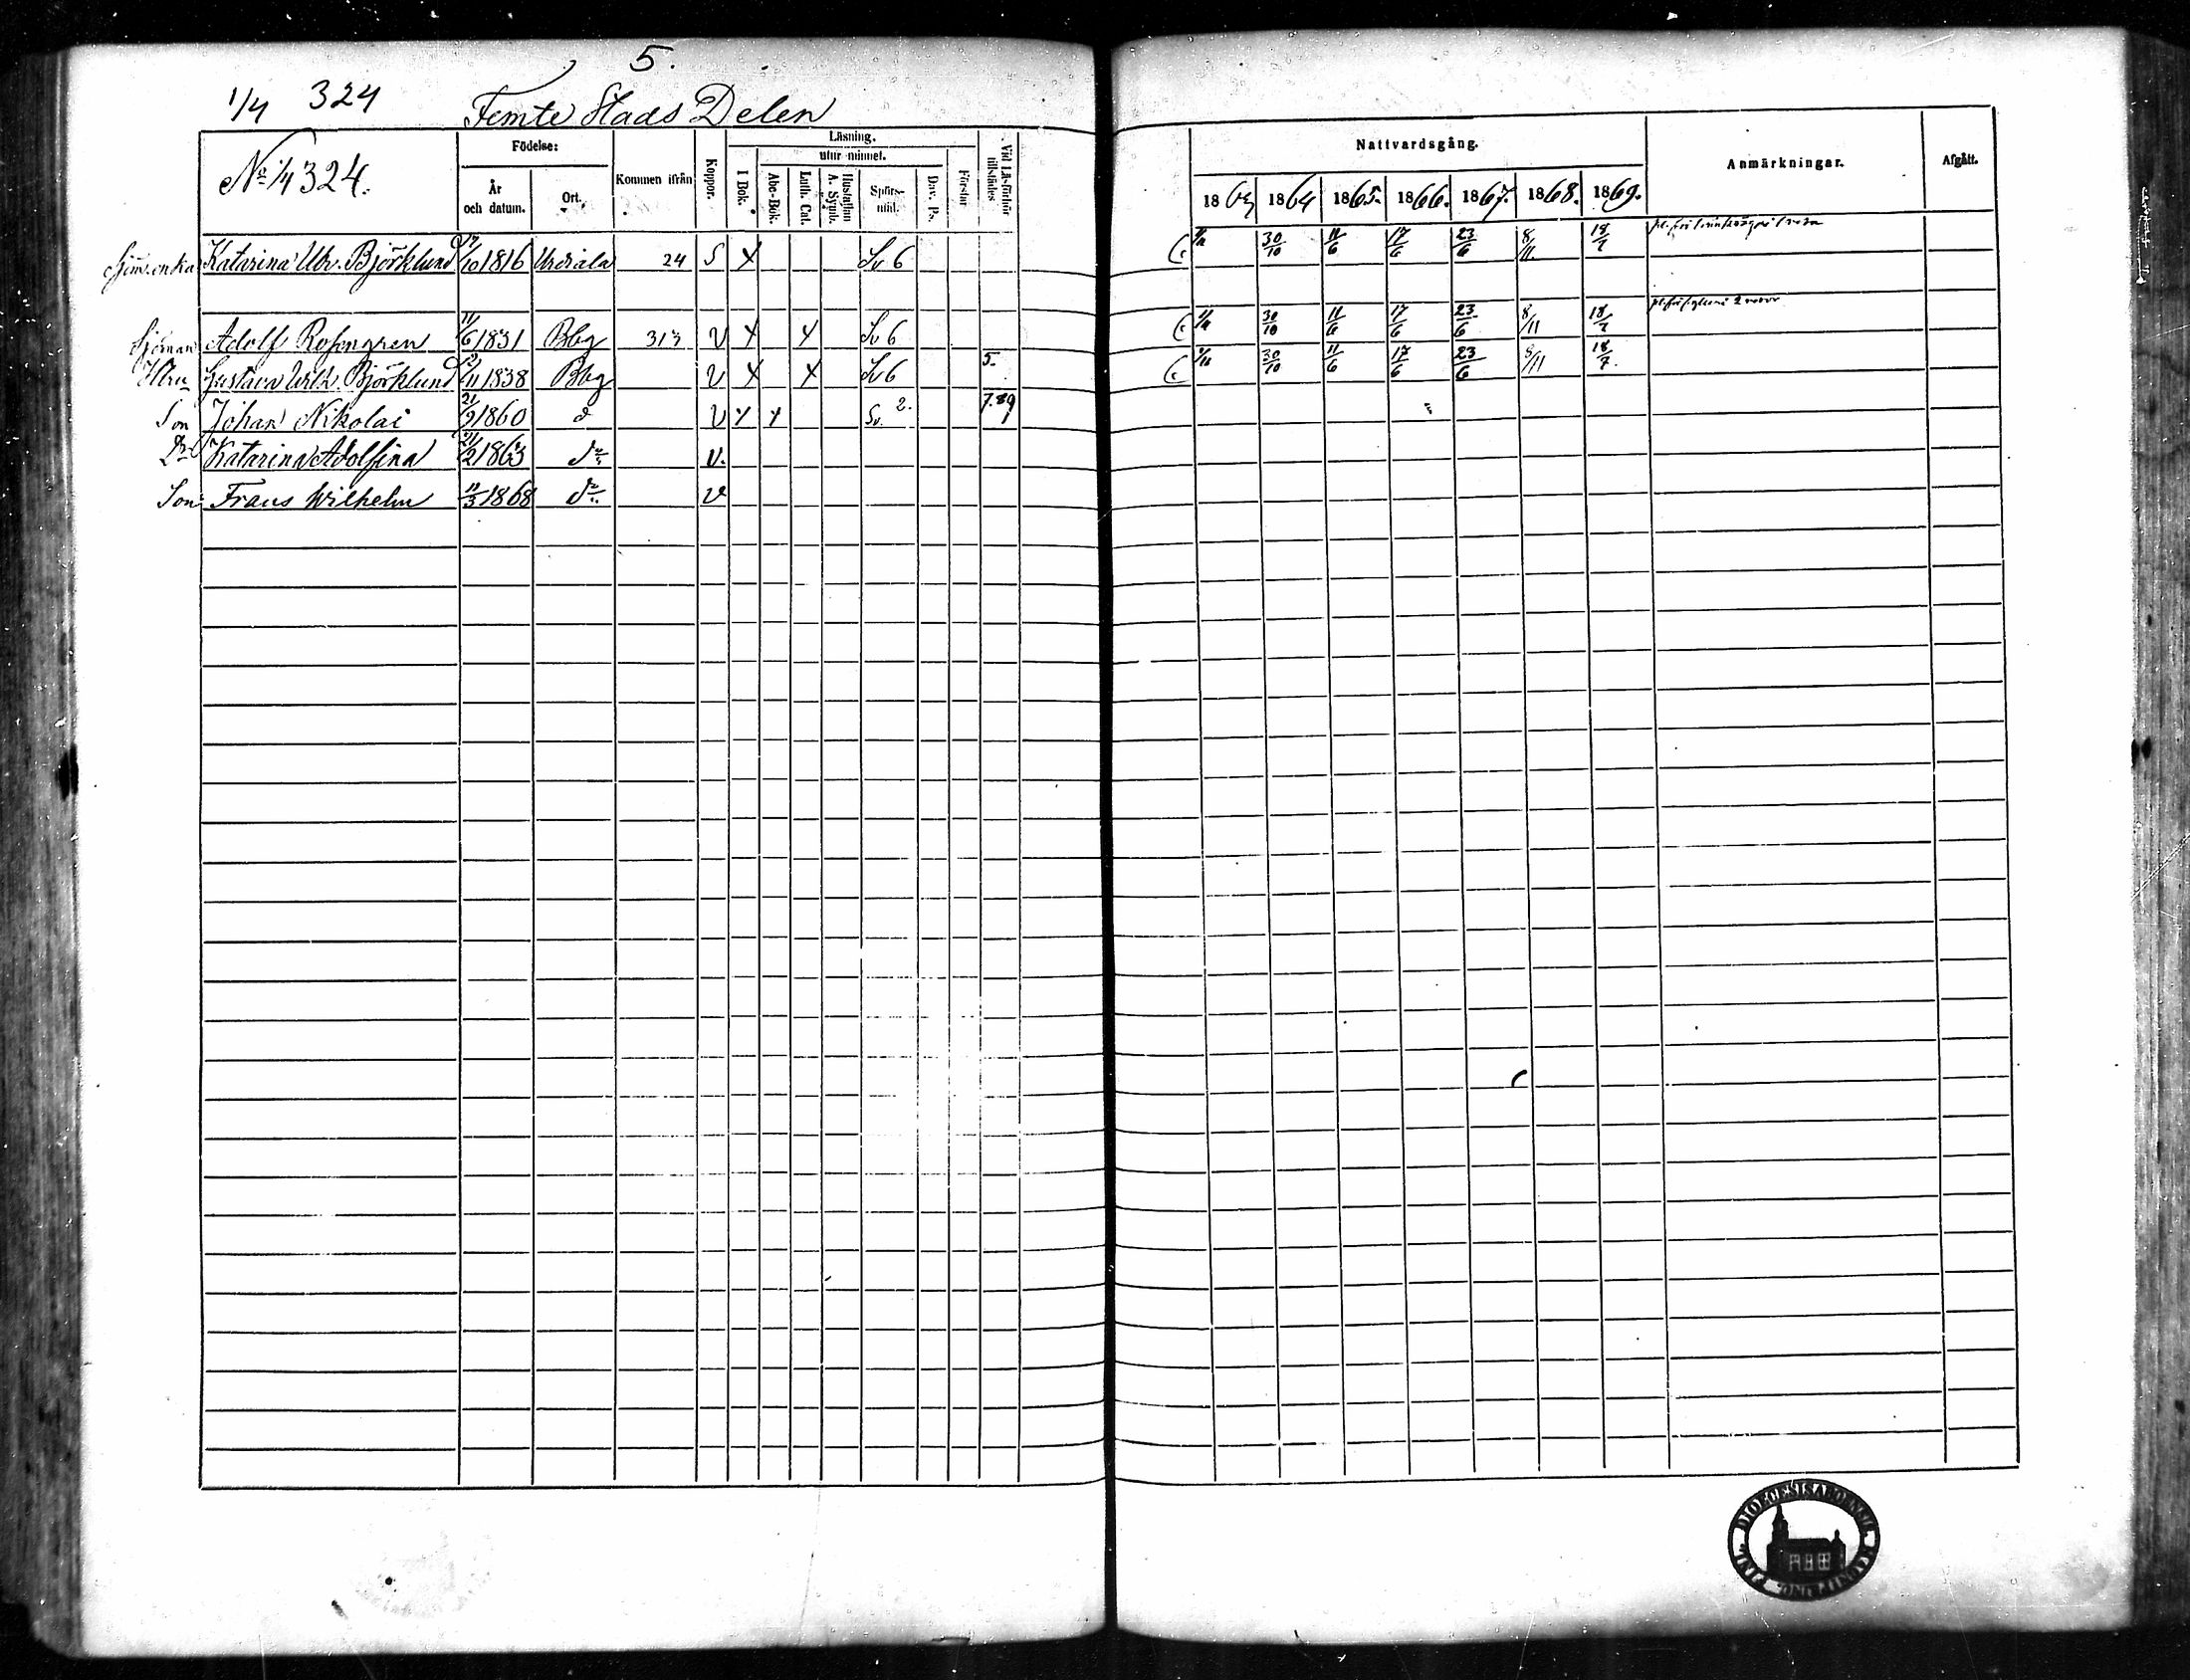 5.
1/4 324 Femte Stads Delen
No 1/4 324.
Födelse:
År och datum.
Ort.
Kommen ifrån
Koppor.
Läsning.
I Bok.
utur minnet.
Abc-Bok.
Luth. Cat.
Hustaflan A. Symb.
Spörs-mål.
Dav. Ps.
Förstår
Vid Läsförhör tillstädes
Nattvardsgång.
1863 1864 1865. 1866. 1867. 1868. 1869.
Anmärkningar.
Afgått.
Sjöm. enka Katarina Ulr. Björklund 17/10 1816 Urdiala 24 S X Sv 6 30/10 11/6 17/6 23/6 8/11 18/7
Sjöman Adolf Rosengren 11/6 1831 Bbg 313 V X X Sv 6 30/10 11/6 17/6 23/6 8/11 18/7
Hru Gustava Wilh. Björklund 2/11 1838 Bbg V X X Sv 6 5. 30/10 11/6 17/6 23/6 8/11 18/7.
Son Johan Nikolai 21/9 1860 d V X X Sv. 2. 7.89 1
Dr Katarina Adolfina 21/2 1863 do V.
Son Frans Wilhelm 11/3 1868 do V
DIOECESIS ABOENSIS